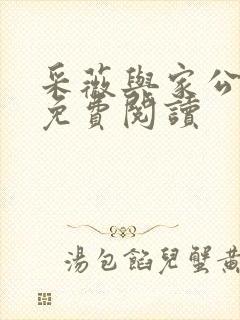 采薇與家公
免費閱讀
湯包餡兒蟹黃